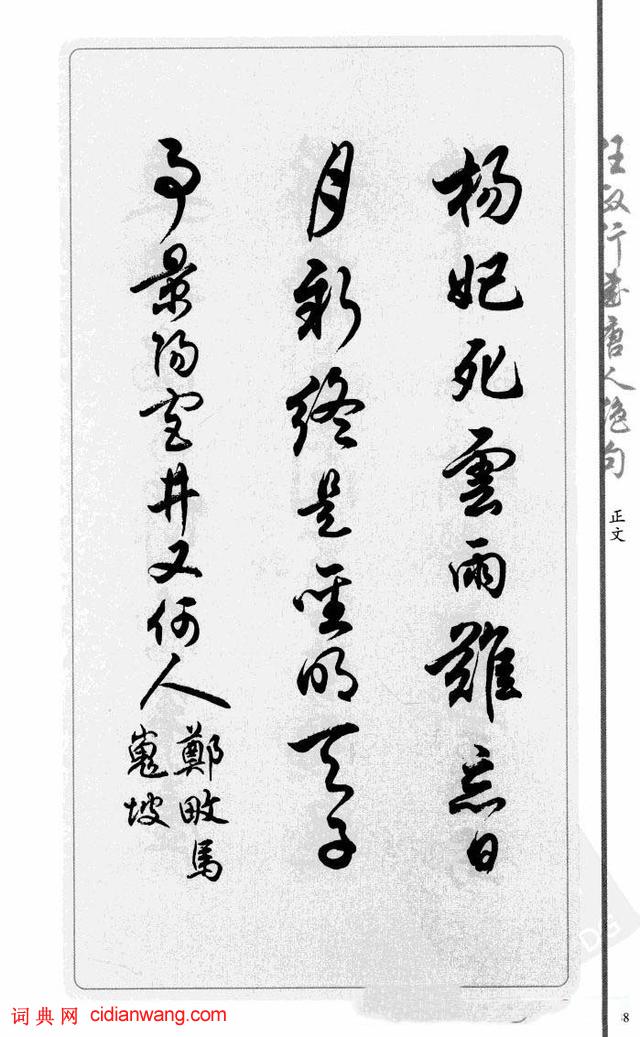 楊妃死雲雨難忘日
月新終是聖明天子
事景陽宮井又何人
鄭畋馬
嵬坡
任政行書唐人絶句
正文
词典网 cidianwang.com
8